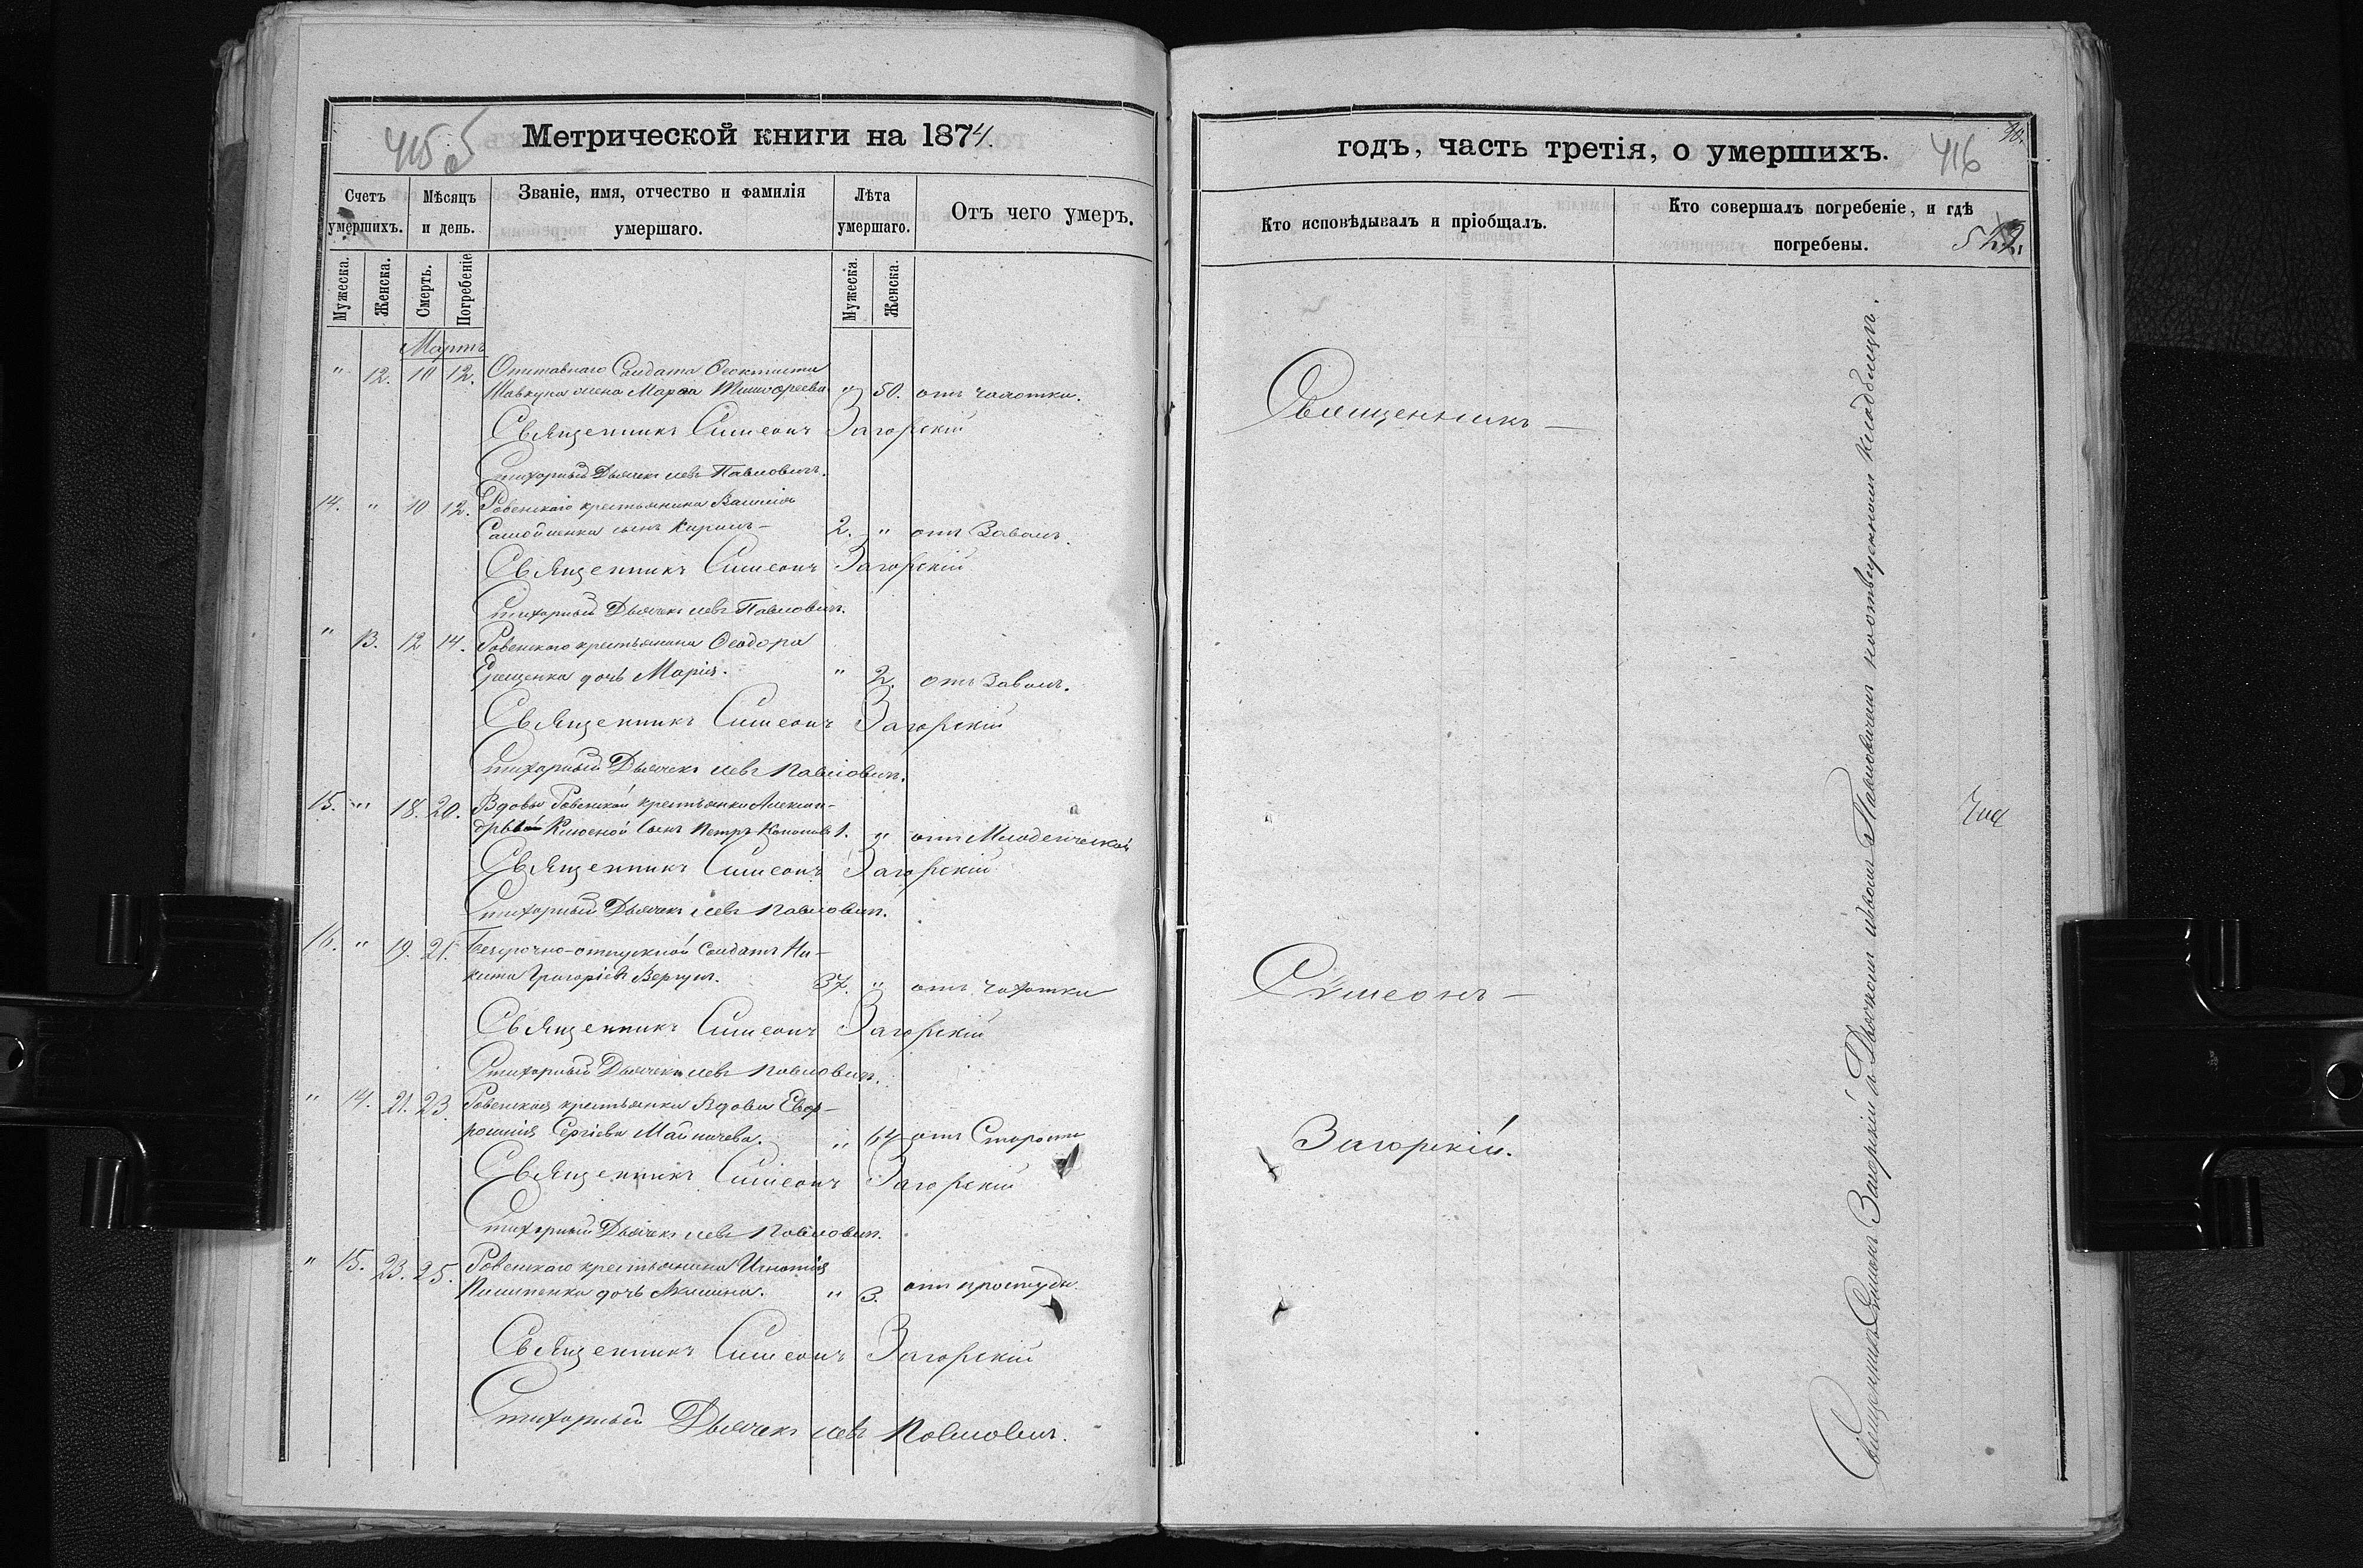 Метрической книги на 1874.
415
Счетъ умершихъ.
Мѣсяцъ и день.
Званіе, имя, отчество и фамилія умершаго.
Лѣта умершаго.
Отъ чего умеръ.
Мужеска.
Женска.
Смерть.
Погребеніе
Мужеска.
Женска.
Мартъ
" 12. 10 12. Отставнаго Солдата Ѳеоктиста
жена Марѳа " 50. отъ чахотки.
Священникъ Симеонъ Загорскій
Стихарный Дьячекъ Левъ Павловичъ.
14. " 10 12. Ровенскаго крестьянина Василія
сынъ Кирилъ 2. " отъ Завалъ.
Священникъ Симеонъ Загорскій
Стихарный Дьячекъ Левъ Павловичъ.
" 13. 12 14. Ровенскаго крестьянина Ѳеодора
дочь Марія. " 2. отъ Завалъ.
Священникъ Симеонъ Загорскій
Стихарный Дьячекъ Левъ Павловичъ.
15. " 18. 20. Вдовы Ровенской крестьянки Алексан-
дры сынъ Петръ 1. " отъ Младенческой
Священникъ Симеонъ Загорскій
Стихарный Дьячекъ Левъ Павловичъ.
16. " 19. 21. Безсрочно-отпускной Солдатъ Ни-
кита Григоріевъ Вергунъ. 37. " отъ чахотки
Священникъ Симеонъ Загорскій
Стихарный Дьячекъ Левъ Павловичъ.
" 14. 21. 23. Ровенская крестьянка Вдова Евф-
росинія Сергіева " 64 отъ Старости
Священникъ Симеонъ Загорскій
Стихарный Дьячекъ Левъ Павловичъ.
" 15. 23. 25. Ровенскаго крестьянина Игнатія
Пилипенка дочь Акилина. " 3. отъ простуды.
Священникъ Симеонъ Загорскій
Стихарный Дьячекъ Левъ Павловичъ.
годъ, часть третія, о умершихъ.
416
Кто исповѣдывалъ и пріобщалъ.
Кто совершалъ погребеніе, и гдѣ погребены.
Священникъ
Симеонъ
Загорскій.
Священникъ Симеонъ Загорскій съ Дьячкомъ Львомъ Павловичемъ на отведенномъ кладбищѣ.